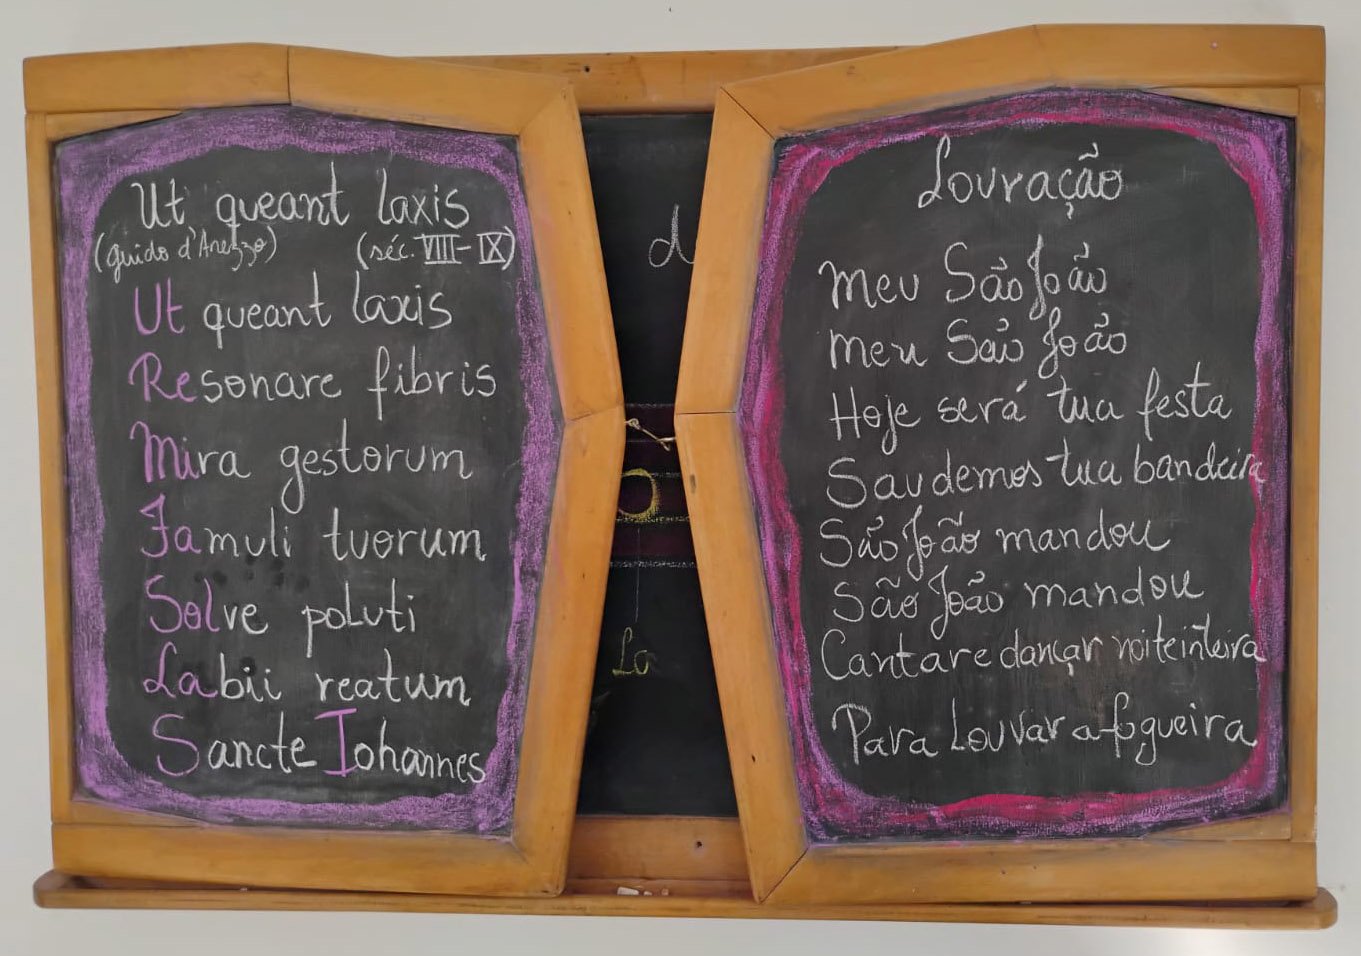 Ut queant laxis
(guido d'Arezzo) (séc. VIII-IX)
Ut queant laxis
Resonare fibris
Mira gestorum
Famuli tuorum
Solve poluti
Labii reatum
Sancte Iohannes
d
Lo
Louvação
Meu São João
Meu São João
Hoje será tua festa
Saudemos tua bandeira
São João mandou
São João mandou
Cantar e dançar noite inteira
Para Louvar a fogueira